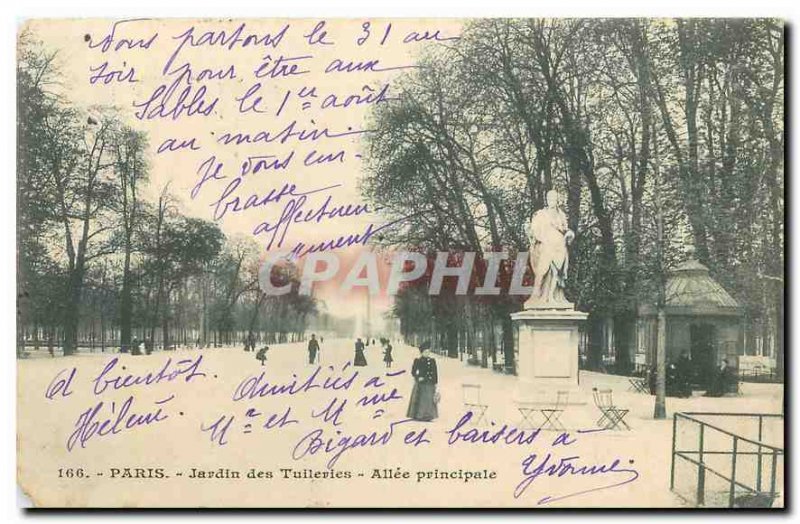 Nous partons le 31 au
soir pour être aux
Sables le 1er août
au matin
Je vous em-
brasse
affectueu
sement
CPAPHIL
A bientôt.
Hélène.
Amitiés à
Mr et Mme
Bigard et baisers à
Yvonne
166. - PARIS. - Jardin des Tuileries - Allée principale